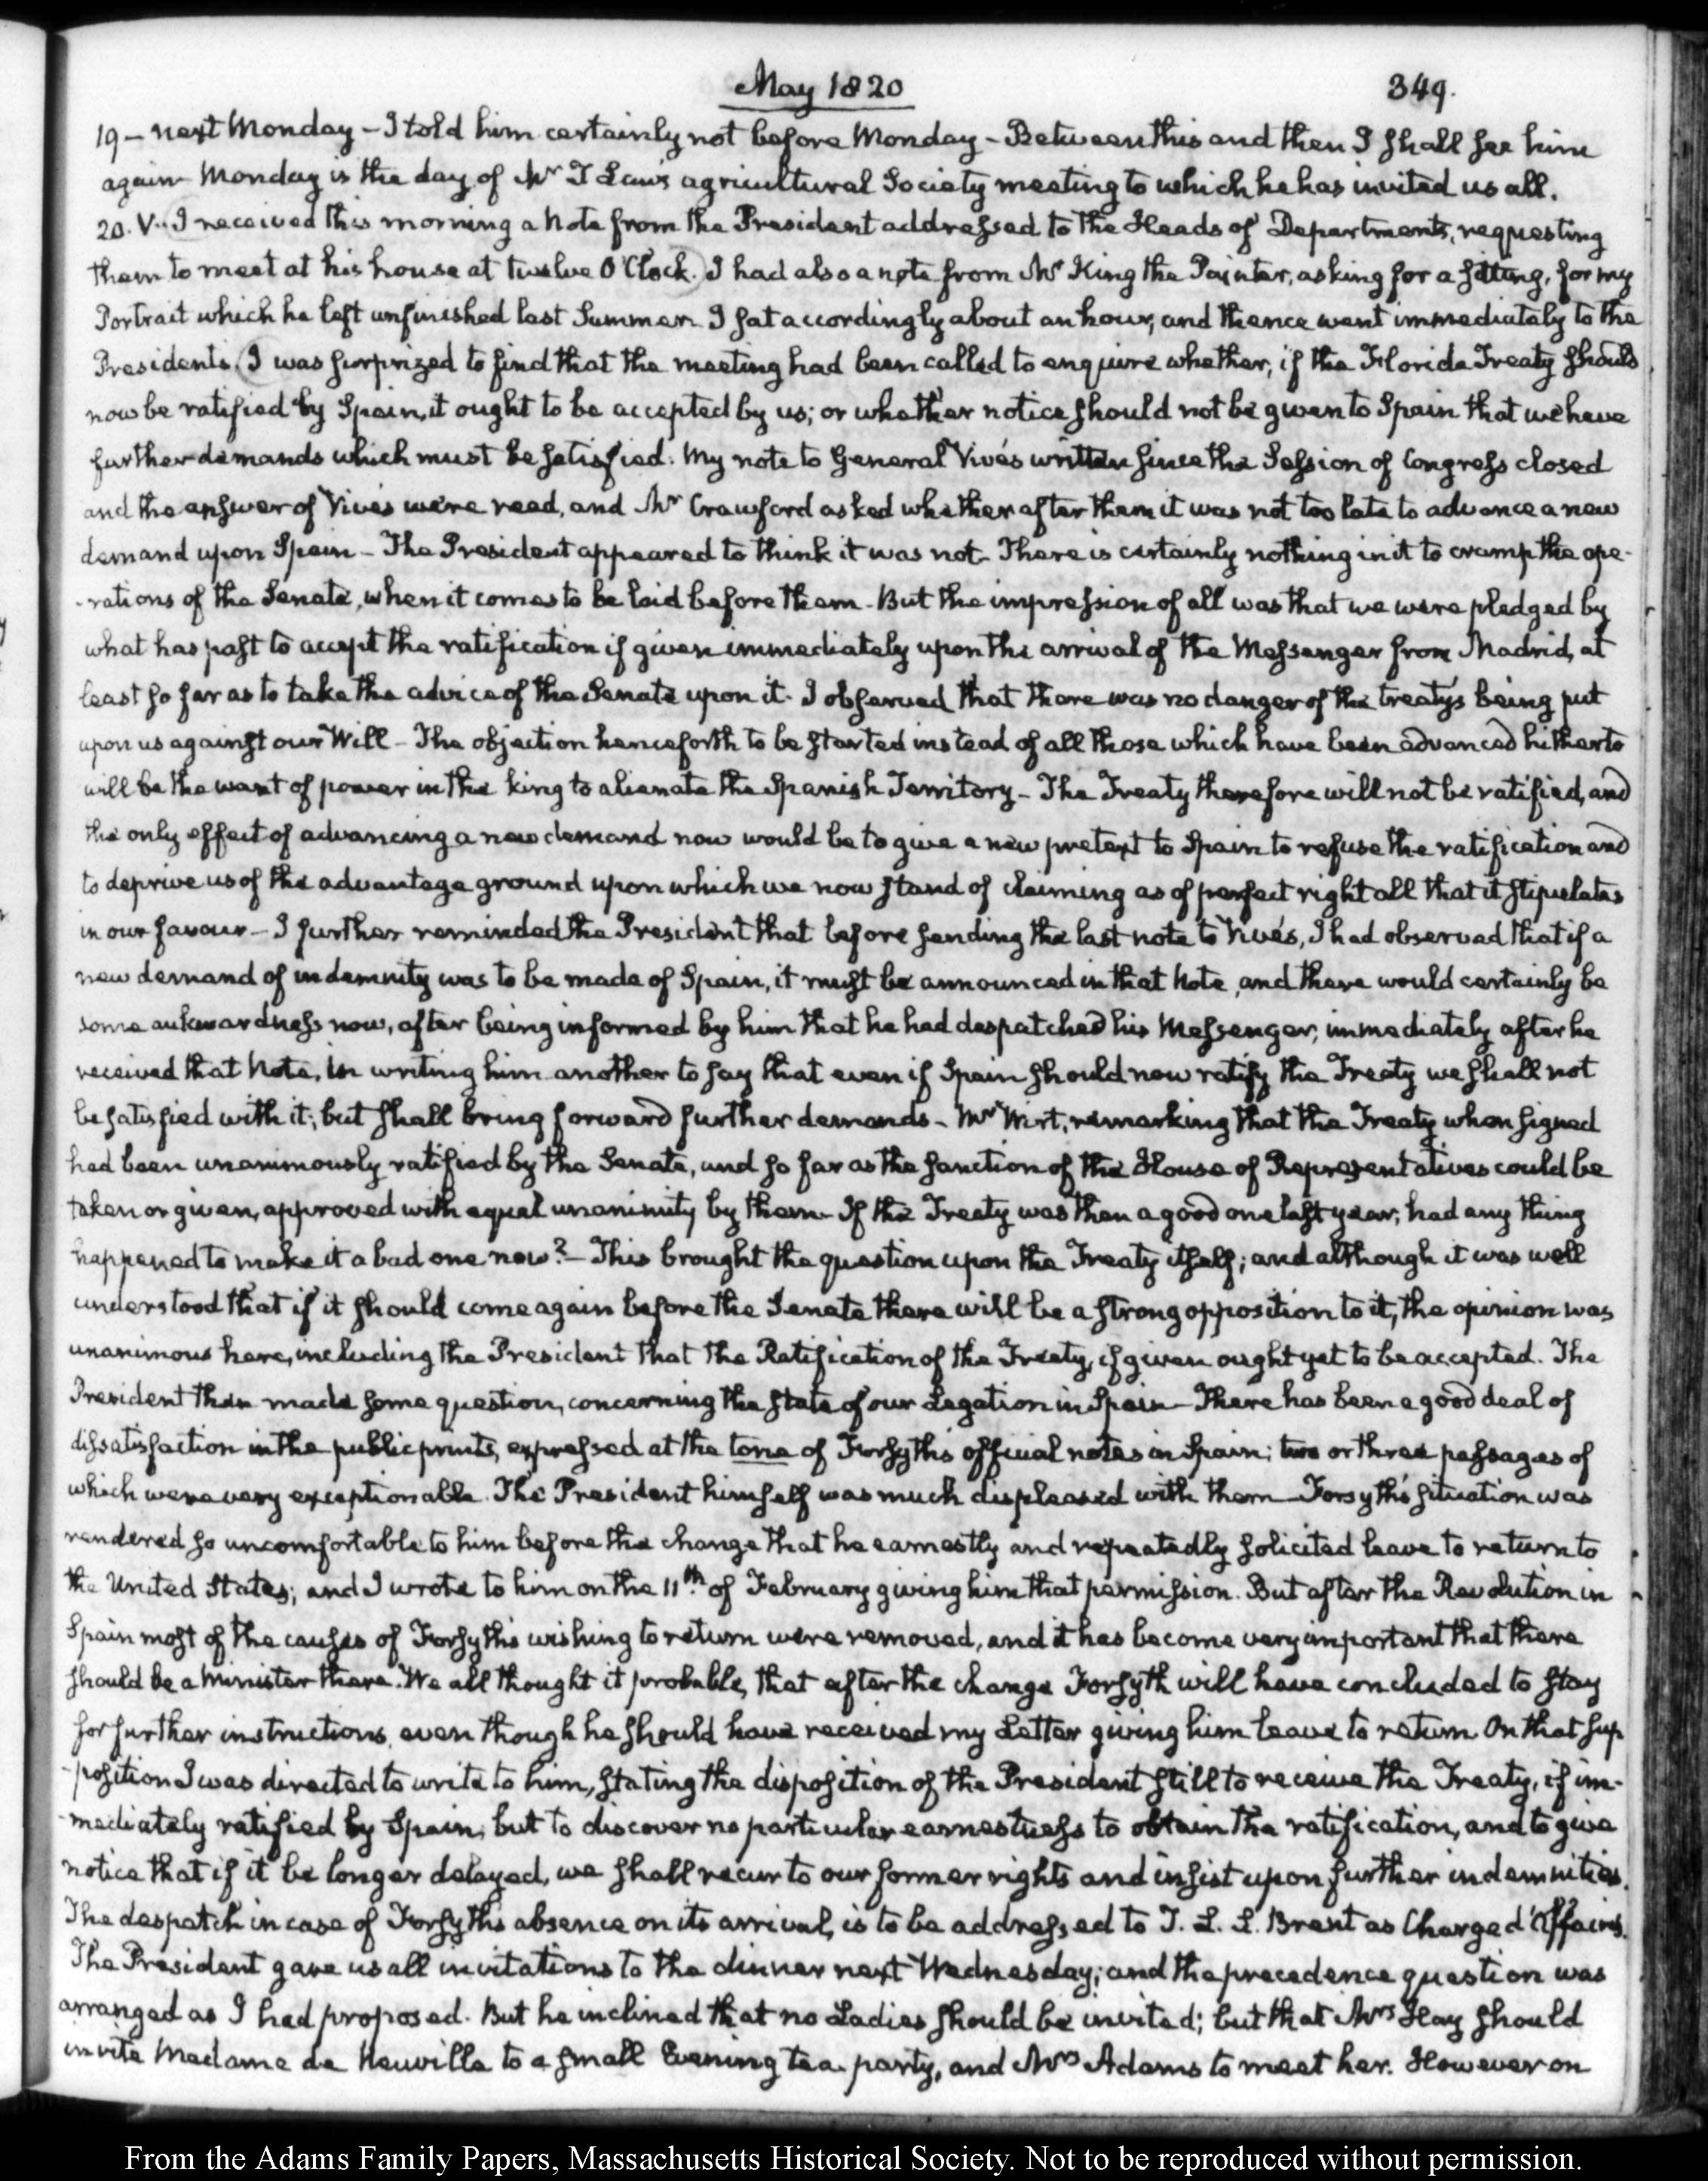 May 1820
349.
19 – next Monday – I told him certainly not before Monday – Between this and then I shall see him
again Monday is the day of Mr T Law's agricultural Society meeting to which he has invited us all.
20. V. I received this morning a Note from the President addressed to the Heads of Departments, requesting
them to meet at his house at twelve O'Clock. I had also a note from Mr King the Painter, asking for a sitting, for my
Portrait which he left unfinished last Summer. I sat accordingly about an hour, and thence went immediately to the
Presidents. I was surprized to find that the meeting had been called to enquire whether, if the Florida Treaty should
now be ratified by Spain, it ought to be accepted by us; or whether notice should not be given to Spain that we have
further demands which must be satisfied. My note to General Vivés written since the Session of Congress closed
and the answer of Vivés were read, and Mr Crawford asked whether after them it was not too late to advance a new
demand upon Spain – The President appeared to think it was not. There is certainly nothing in it to cramp the ope-
-rations of the Senate, when it comes to be laid before them. But the impression of all was that we were pledged by
what has past to accept the ratification if given immediately upon the arrival of the Messenger from Madrid, at
least so far as to take the advice of the Senate upon it. I observed that there was no danger of the treaty's being put
upon us against our Will – The objection henceforth to be started instead of all those which have been advanced hitherto
will be the want of power in the king to alienate the Spanish Territory – The Treaty therefore will not be ratified, and
the only effect of advancing a new demand now would be to give a new pretext to Spain to refuse the ratification and
to deprive us of the advantage ground upon which we now stand of claiming as of perfect right all that it stipulates
in our favour – I further reminded the President that before sending the last note to Vivés, I had observed that if a
new demand of indemnity was to be made of Spain, it must be announced in that Note, and there would certainly be
some aukwardness now, after being informed by him that he had despatched his Messenger, immediately after he
received that Note, in writing him another to say that even if Spain should now ratify the Treaty we shall not
be satisfied with it; but shall bring forward further demands – Mr Wirt, remarking that the Treaty when signed
had been unanimously ratified by the Senate, and so far as the sanction of the House of Representatives could be
taken or given, approved with equal unanimity by them – If the Treaty was then a good one last year, had any thing
happened to make it a bad one now? – This brought the question upon the Treaty itself; and although it was well
understood that if it should come again before the Senate there will be a strong opposition to it, the opinion was
unanimous here, including the President that the Ratification of the Treaty, if given ought yet to be accepted. The
President then made some question, concerning the state of our Legation in Spain – There has been a good deal of
dissatisfaction in the public prints, expressed at the tone of Forsyth's official notes in Spain; two or three passages of
which were very exceptionable. The President himself was much displeased with them – Forsyth's situation was
rendered so uncomfortable to him before the change that he earnestly and repeatedly solicited leave to return to
the United States; and I wrote to him on the 11th of February giving him that permission. But after the Revolution in
Spain most of the causes of Forsyth's wishing to return were removed, and it has become very important that there
should be a Minister there. We all thought it probable, that after the change Forsyth will have concluded to stay
for further instructions, even though he should have received my Letter giving him leave to return. On that sup-
-position I was directed to write to him, stating the disposition of the President still to receive the Treaty, if im-
-mediately ratified by Spain; but to discover no particular earnestness to obtain the ratification, and to give
notice that if it be longer delayed, we shall recur to our former rights and insist upon further indemnities.
The despatch in case of Forsyth's absence on its arrival, is to be addressed to T. L. L. Brent as Charge d'Affaires.
The President gave us all invitations to the dinner next Wednesday; and the precedence question was
arranged as I had proposed. But he inclined that no Ladies should be invited; but that Mrs Hay should
invite Madame de Neuville to a small Evening tea party, and Mrs Adams to meet her. However on
From the Adams Family Papers, Massachusetts Historical Society. Not to be reproduced without permission.